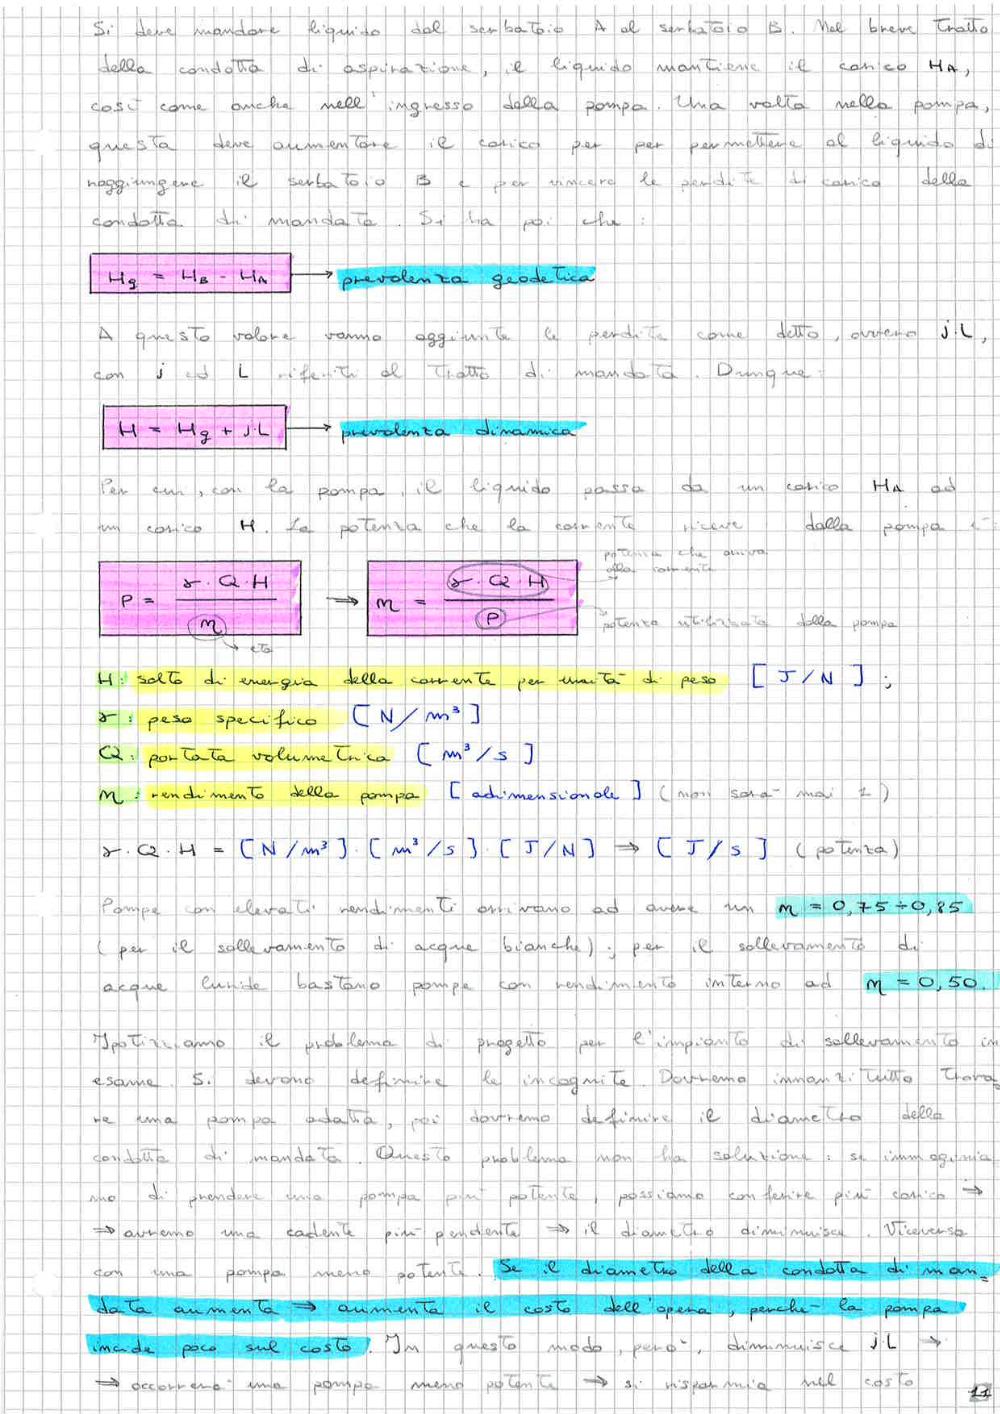 Si deve mandare liquido dal serbatoio A al serbatoio B. Nel breve tratto
della condotta di aspirazione, il liquido mantiene il carico HA,
così come anche nell'ingresso della pompa. Una volta nella pompa,
questa deve aumentare il carico per per permettere al liquido di
raggiungere il serbatoio B e per vincere le perdite di carico della
condotta di mandata. Si ha poi che:
Hg = HB - HA → prevalenza geodetica
A questo valore vanno aggiunte le perdite come detto, ovvero j.L,
con j ed L riferiti al tratto di mandata. Dunque:
H = Hg + j.L → prevalenza dinamica
Per cui, con la pompa, il liquido passa da un carico HA ad
un carico H. La potenza che la corrente riceve dalla pompa è:
P = γ·Q·H / η → η = γ·Q·H / P
potenza che arriva
alla corrente
potenza utilizzata dalla pompa
eta
H: salto di energia della corrente per unità di peso [J/N];
γ: peso specifico [N/m³]
Q: portata volumetrica [m³/s]
η: rendimento della pompa [adimensionale] (non sarà mai 1)
γ·Q·H = [N/m³]·[m³/s]·[J/N] → [J/s] (potenza)
Pompe con elevati rendimenti arrivano ad avere un η = 0,75÷0,85
(per il sollevamento di acque bianche); per il sollevamento di
acque luride bastano pompe con rendimento intorno ad η = 0,50.
Ipotizziamo il problema di progetto per l'impianto di sollevamento in
esame. Si devono definire le incognite. Dovremo innanzitutto trova
re una pompa adatta, poi dovremo definire il diametro della
condotta di mandata. Questo problema non ha soluzione: se immaginia
mo di prendere una pompa più potente, possiamo conferire più carico ⇒
⇒ avremo una cadente più pendente ⇒ il diametro diminuisce. Viceversa
con una pompa meno potente. Se il diametro della condotta di man=
data aumenta ⇒ aumenta il costo dell'opera, perché la pompa
incide poco sul costo. In questo modo, però, diminuisce j.L →
→ occorrerà una pompa meno potente → si risparmia nel costo
11